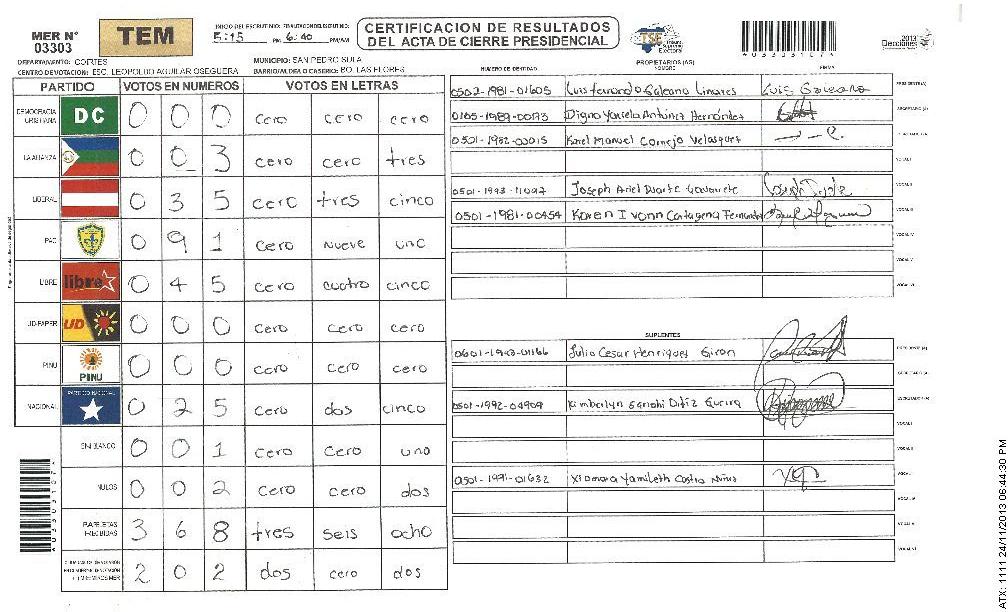 MER N° 03303
TEM
INICIO DEL ESCRUTINIO: FINALIZACION DEL ESCRUTINIO:
5:15 PM 6:40 PM/AM
CERTIFICACION DE RESULTADOS
DEL ACTA DE CIERRE PRESIDENCIAL
TSE Tribunal Supremo Electoral
AU33031074
2013 Elecciones
DEPARTAMENTO: CORTES
MUNICIPIO: SAN PEDRO SULA
CENTRO DE VOTACION: ESC. LEOPOLDO AGUILAR OSEGUERA
BARRIO/ALDEA O CASERIO: BO. LAS FLORES
PARTIDO VOTOS EN NUMEROS VOTOS EN LETRAS
DEMOCRACIA CRISTIANA DC 0 0 0 cero cero cero
LA ALIANZA 0 0 3 cero cero tres
LIBERAL 0 3 5 cero tres cinco
PAC 0 9 1 cero nueve uno
LIBRE libre 0 4 5 cero cuatro cinco
UD-FAPER UD 0 0 0 cero cero cero
PINU PINU 0 0 0 cero cero cero
NACIONAL PARTIDO NACIONAL 0 2 5 cero dos cinco
EN BLANCO 0 0 1 cero cero uno
NULOS 0 0 2 cero cero dos
PAPELETAS RECIBIDAS 3 6 8 tres seis ocho
2 0 2 dos cero dos
NUMERO DE IDENTIDAD PROPIETARIOS (AS) NOMBRE FIRMA
0502-1981-01605 Luis Fernando Galeano Linares Luis Galeano PRESIDENTE(A)
0105-1989-00173 Digna Yaniela Antunez Hernández SECRETARIO (A)
0501-1982-00015 Karel Manuel Cornejo Velasquez
VOCAL I
0501-1993-11097 Joseph Ariel Duarte Navarrete VOCAL II
0501-1981-00454 Karen Ivonn Cartagena Fernandez VOCAL III
VOCAL IV
VOCAL V
VOCAL VI
SUPLENTES
0601-1943-01166 Julio Cesar Henriquez Giron PRESIDENTE (A)
SECRETARIO (A)
0501-1992-04909 Kimberlyn Ortiz ESCRUTADOR (A)
VOCAL I
VOCAL II
0501-1991-01632 Xiomara Yamileth Castro
VOCAL IV
VOCAL V
VOCAL VI
AU33031074
ATX: 1111 24/11/2013 06:44:30 PM